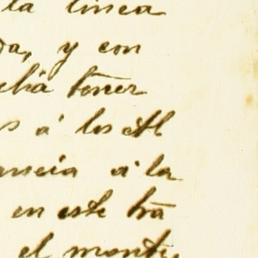 la linea
da, y con
tener
s á los Al
á la
en este tra
el monte,